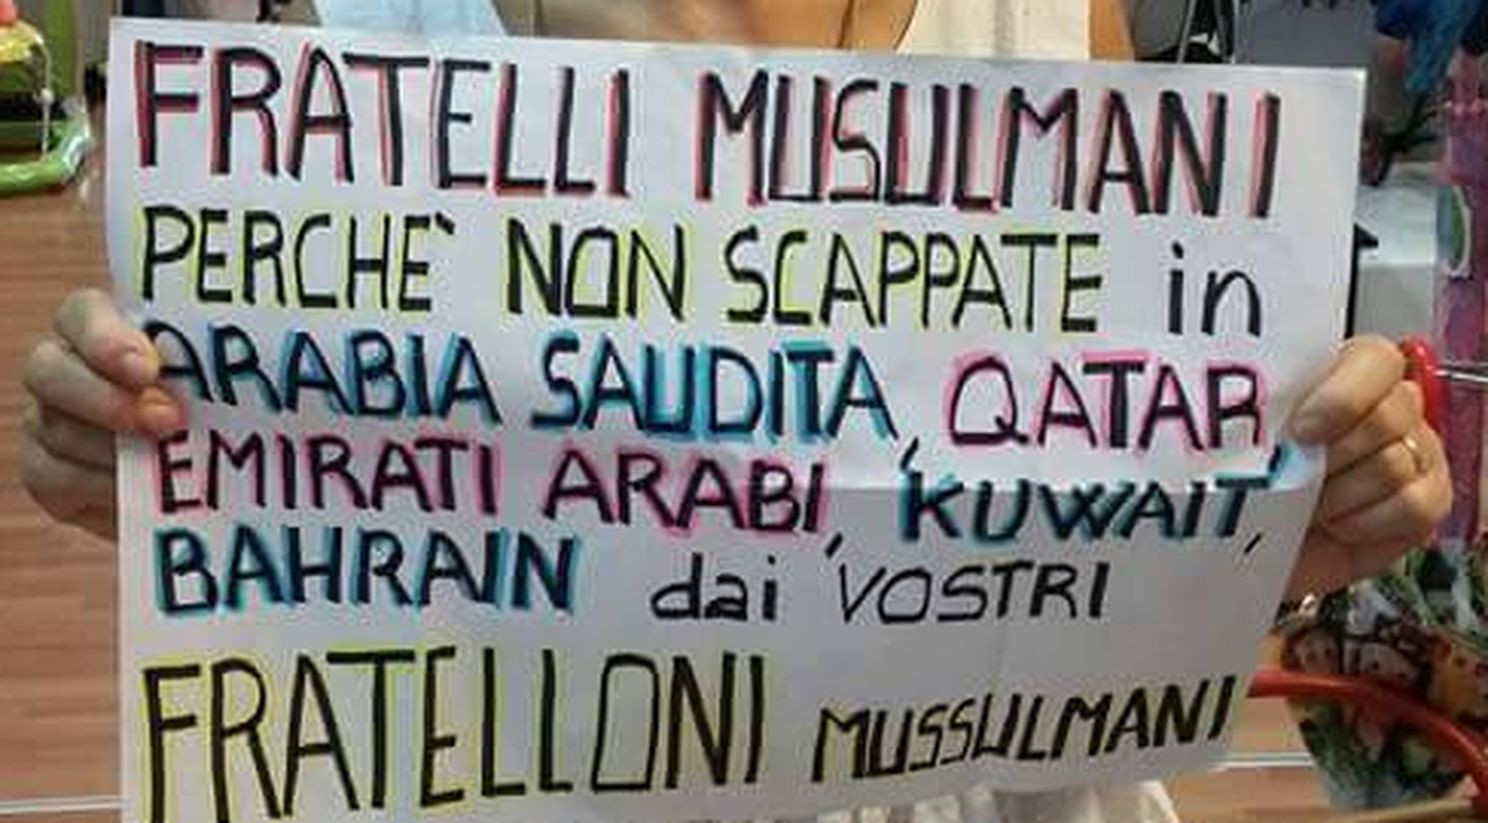 FRATELLI MUSULMANI
PERCHE` NON SCAPPATE in
ARABIA SAUDITA, QATAR,
EMIRATI ARABI, KUWAIT,
BAHRAIN dai VOSTRI
FRATELLONI MUSSULMANI